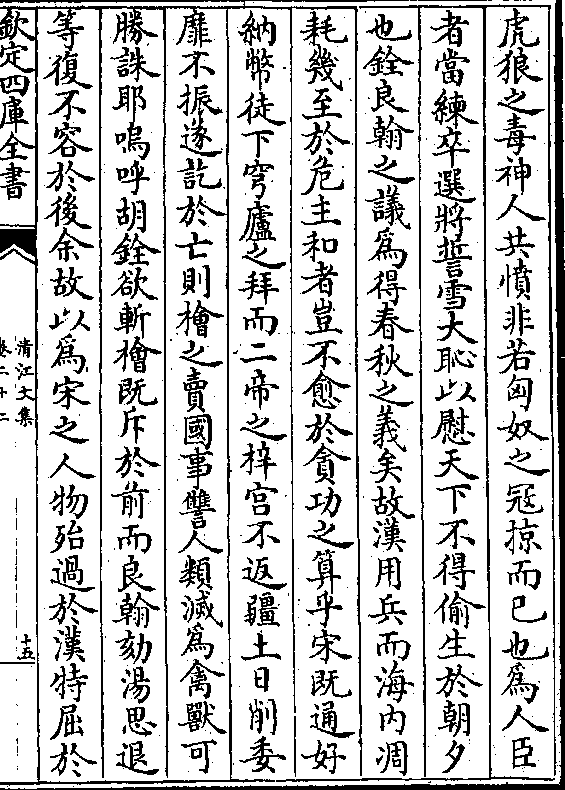 虎狼之毒神人共憤非若匈奴之冦掠而已也為人臣
者當練卒選將誓雪大恥以慰天下不得偷生於朝夕
也銓良翰之議為得春秋之義矣故漢用兵而海内凋
耗幾至於危主和者豈不愈於貪功之算乎宋既通好
納幣徒下穹廬之拜而二帝之梓宫不返疆土日削委
靡不振遂訖於亡則檜之賣國事讐人類滅為禽獸可
勝誅耶嗚呼胡銓欲斬檜既斥於前而良翰劾湯思退
等復不容於後余故以為宋之人物殆過於漢特屈於
欽定四庫全書
清江文集
卷二十二
十五